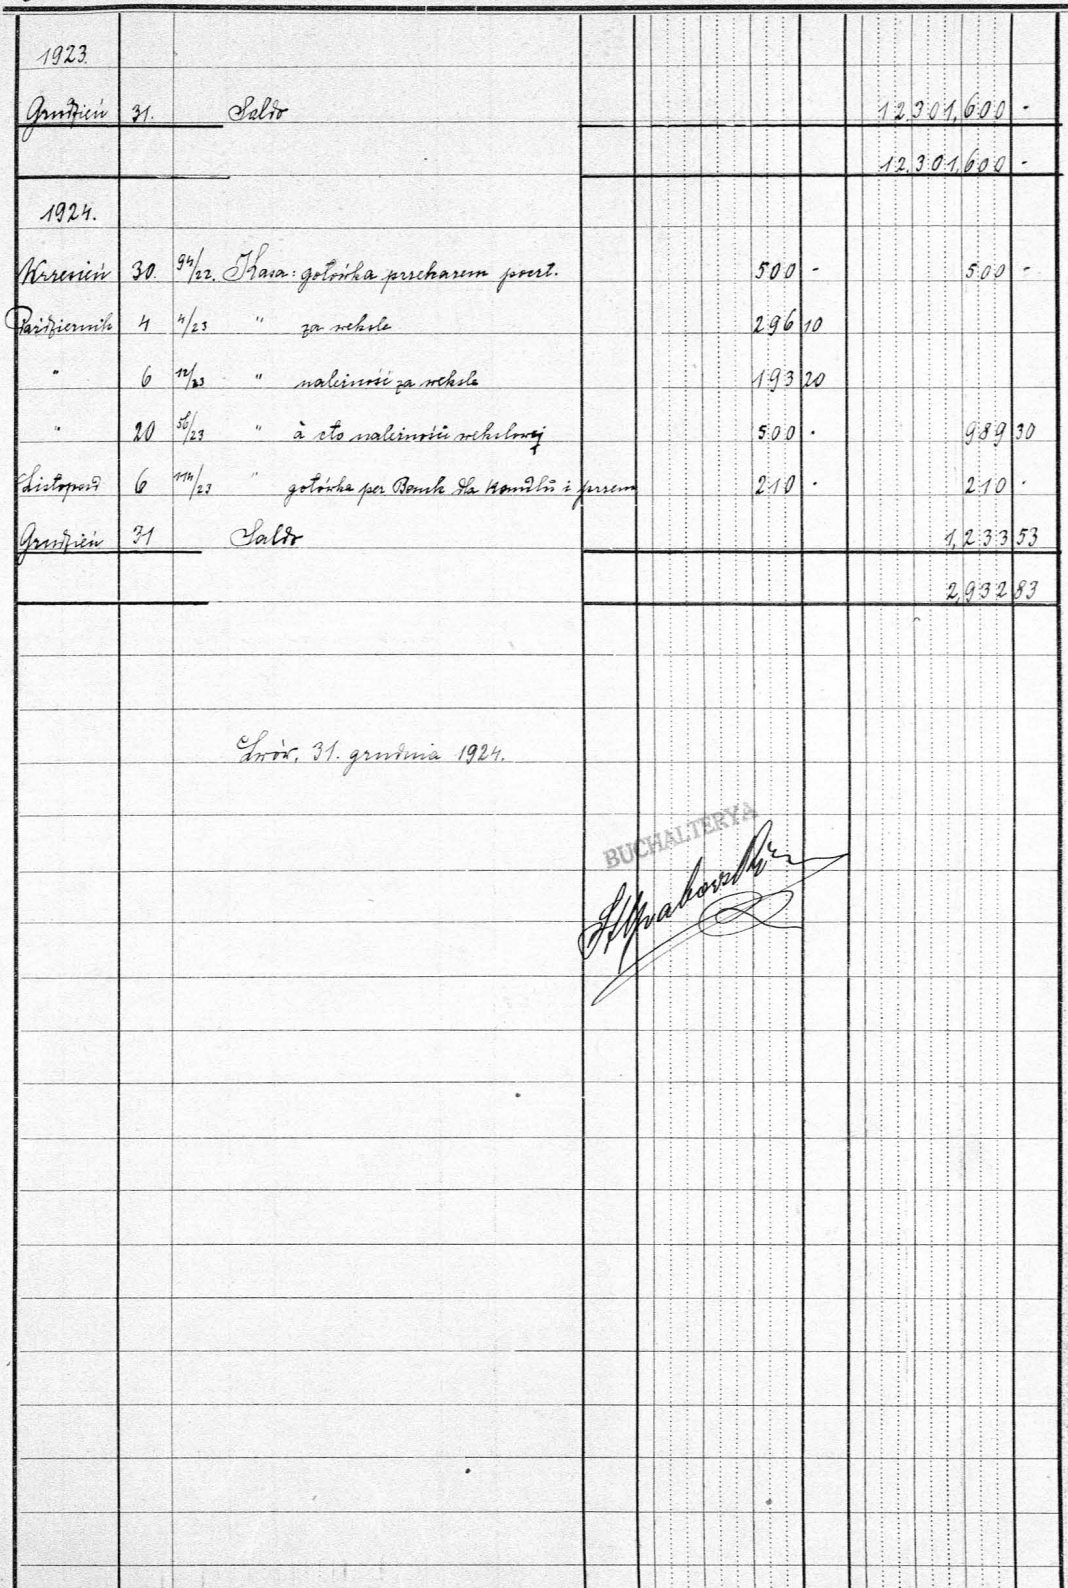 1923.
Grudzień 31. Saldo 12,301,600 -
12,301,600 -
1924.
Wrzesień 30. 94/22. Kasa: gotówka przekazem poczt. 500 - 500 -
Październik 4 4/23 " za weksle 296 10
" 6 12/23 " należność za weksle 193 20
" 20 56/23 " à cto należności wekslowej 500 . 989 30
Listopad 6 114/23 " gotówka per Bank dla handlu i przem 210 . 210 .
Grudzień 31 Saldo 1,233 53
2,932 83
Lwów, 31. grudnia 1924.
BUCHALTERYA